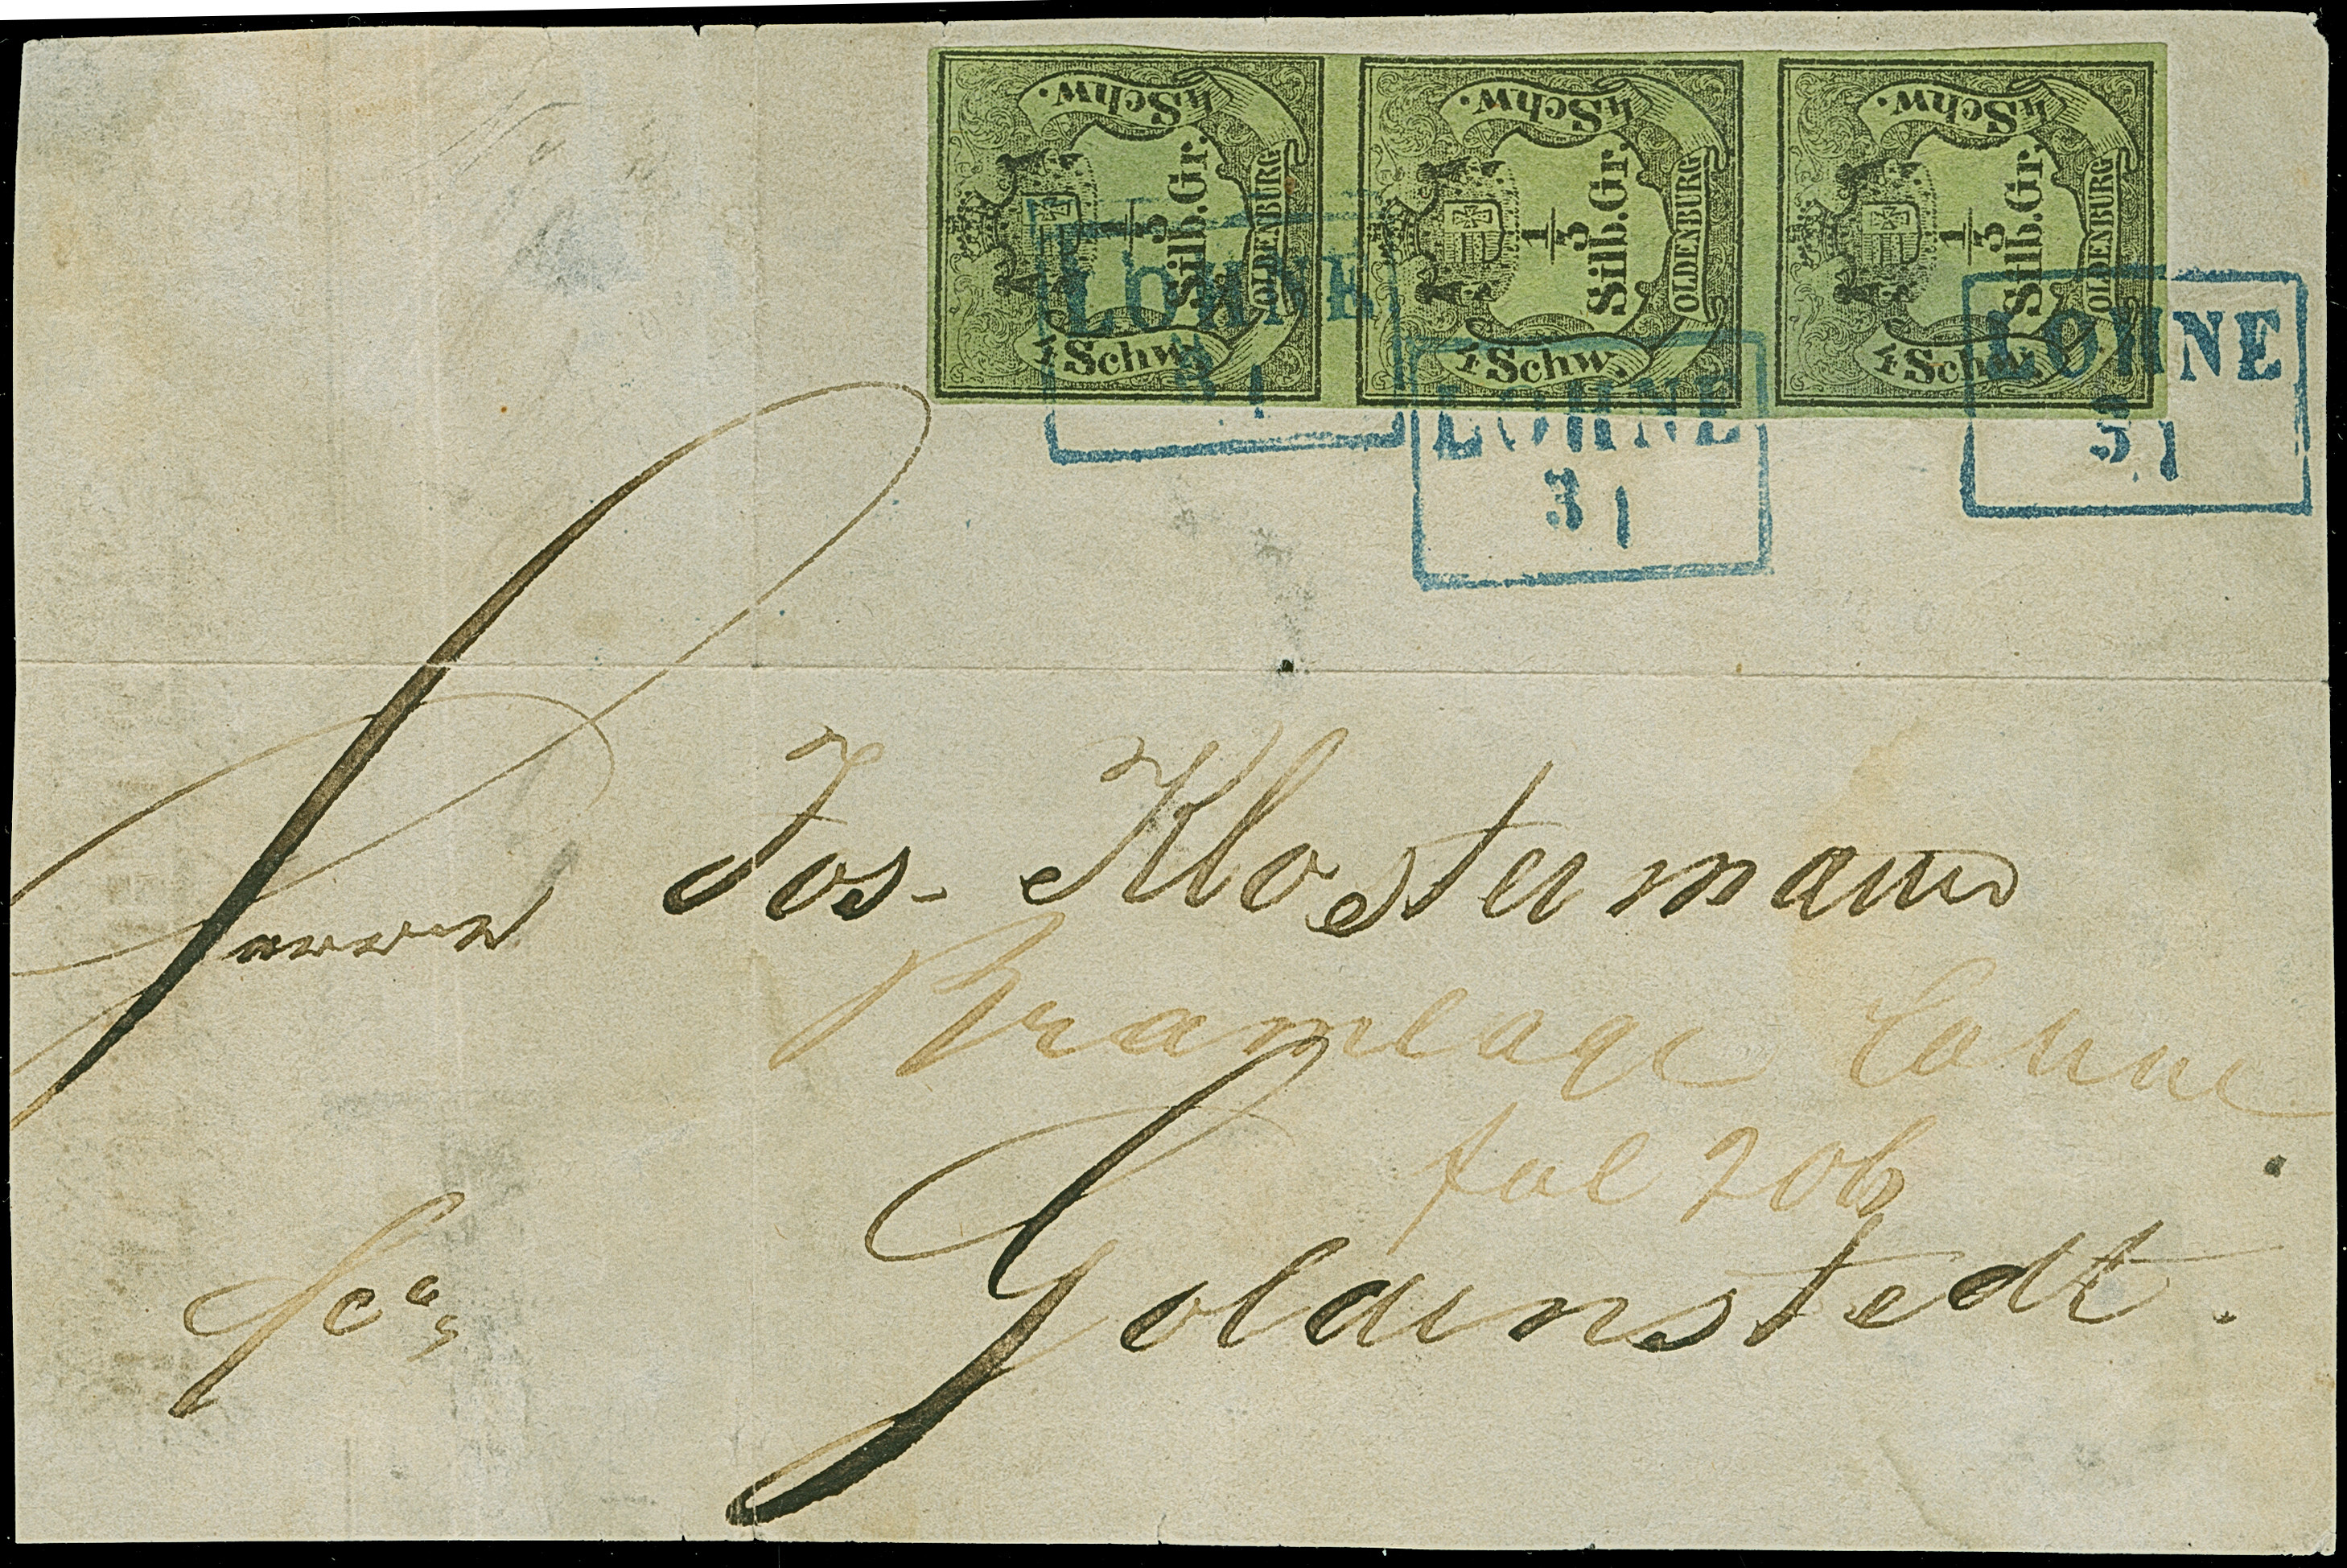 4 Schw. 1/3 Silb.Gr. 4 Schw. OLDENBURG
4 Schw. 1/3 Silb.Gr. 4 Schw. OLDENBURG
4 Schw. 1/3 Silb.Gr. 4 Schw. OLDENBURG
LOHNE
3 1
LOHNE
3 1
LOHNE
3 1
Herrn Jos. Klostermann
Bramlage Lohne
fol 206
Goldenstedt.